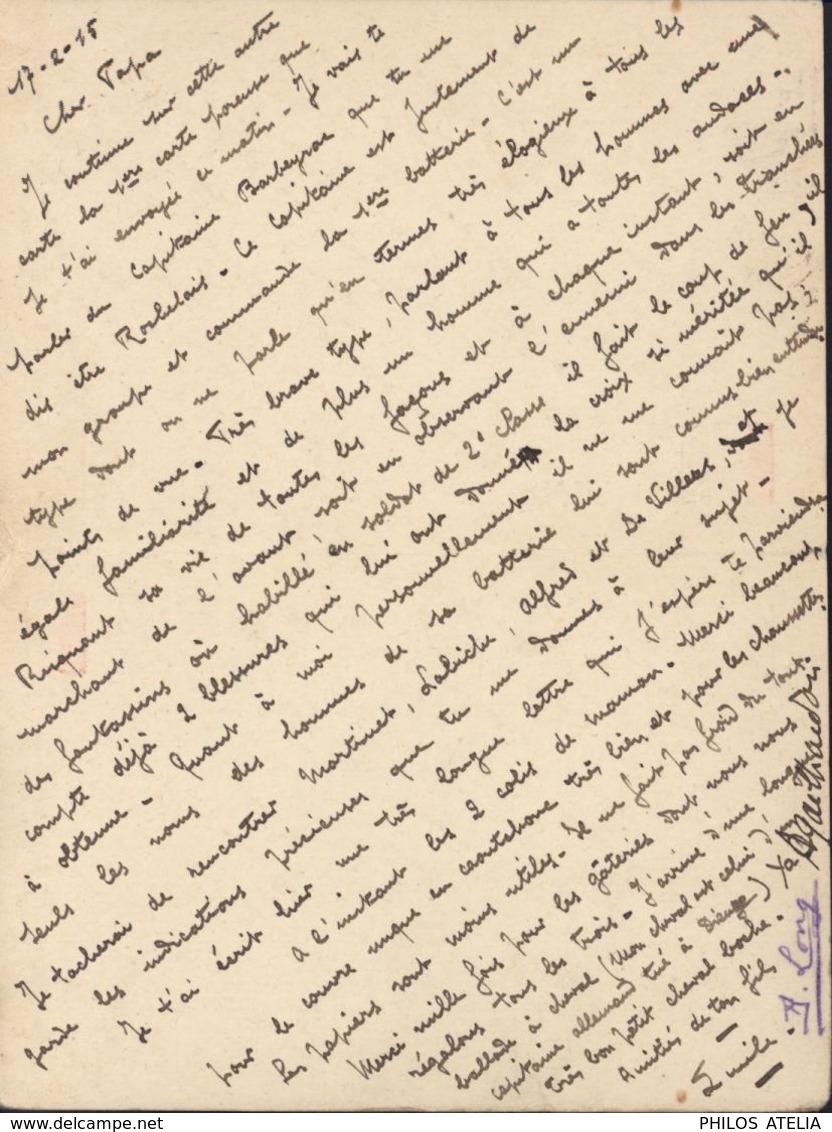 17-2-15
Cher Papa
Je continue sur cette autre
carte la 1ere carte parceque que
Je t'ai envoyée ce matin - Je vais te
parler du Capitaine Barbeyrac que tu me
dis être Rochelais - Ce Capitaine est justement de
mon groupe et commande la 1ere batterie - C'est un
type dont on ne parle qu'en termes très élogieux à tous les
points de vue - Très brave type, parlant à tous les hommes avec une
égale familiarité et de plus un homme qui a toutes les audaces -
Risquant sa vie de toutes les façons et à chaque instant, soit en
marchant de l'avant soit en observant l'ennemi dans les tranchées
des fantassins où habillé en soldat de 2e classe il fait le coup de feu, il
compte déjà 2 blessures qui lui ont donné la croix si méritée qu'il
a obtenue - Quant à moi personnellement il ne me connait pas -
Seuls les noms des hommes de sa batterie lui sont connus bien entendu
Je tacherai de rencontrer Martinet, Labiche, Alfred et De Villers, et Je
garde les indications précieuses que tu me donnes à leur sujet -
Je t'ai écrit hier une très longue lettre qui j'espère te parviendra
A l'instant les 2 colis de maman - Merci beaucoup
pour le couvre nuque en caoutchouc très bien et pour les chaussettes
Les papiers sont moins utiles. Je ne fait pas froid du tout
Merci mille fois pour les gâteries dont nous nous
régalons tous les trois - J'arrive d'une longue
ballade à cheval (Mon cheval est celui d'1
capitaine allemand tué à Dieuze) Ya
très bon petit cheval boche -
Amitiés de ton fils
Emile -
A. Long
PHILOS ATELIA
www.delcampe.net